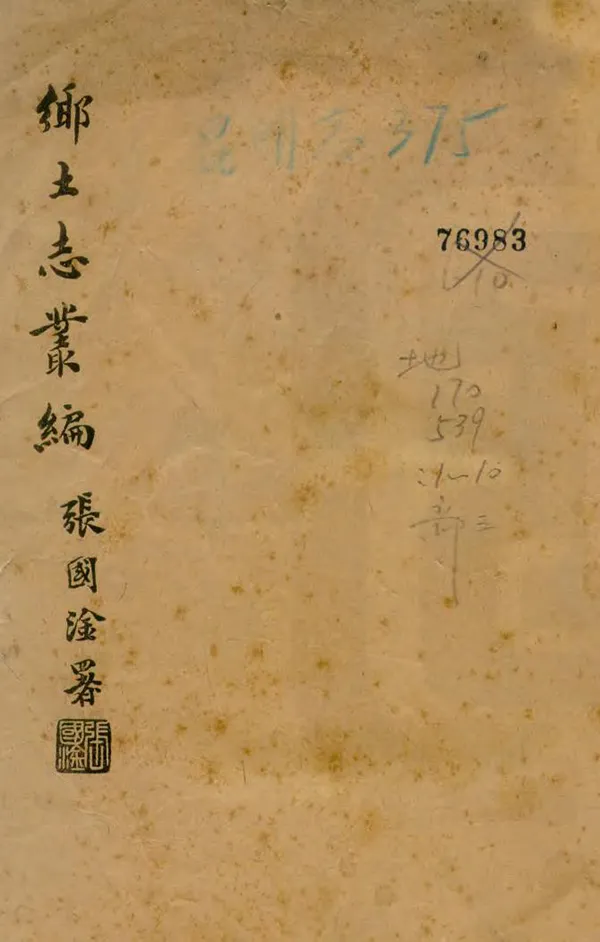 鄉土志叢編 張國淦署
張國淦
375
76983
地
170
539